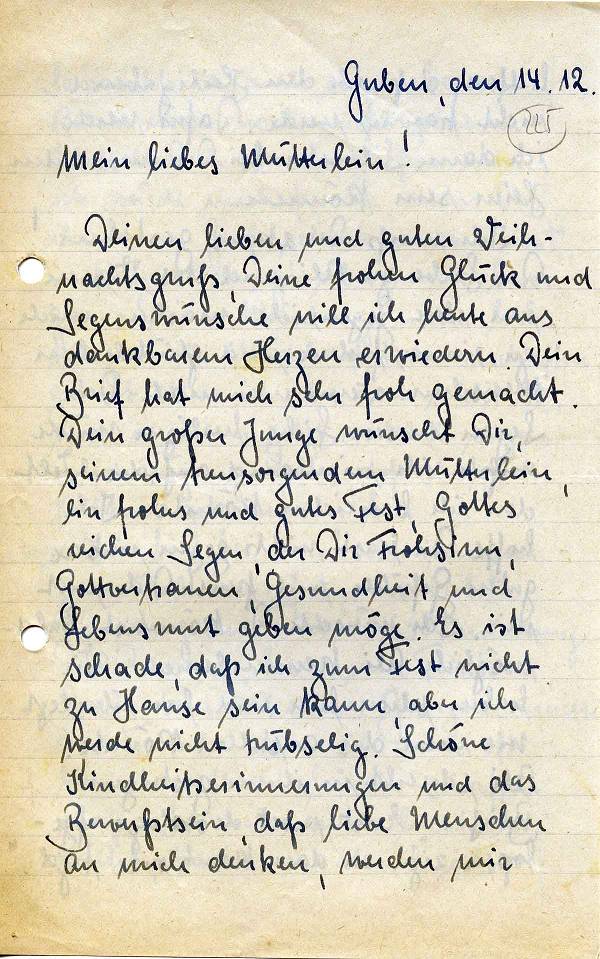 Guben, den 14.12.
225
Mein liebes Mütterlein!
Deinen lieben und guten Weih-
nachtsgruß, Deine frohen Glück und
Segenswünsche will ich heute aus
dankbarem Herzen erwiedern. Dein
Brief hat mich sehr froh gemacht.
Dein großer Junge wünscht Dir,
seinem treusorgendem Mütterlein,
ein frohes und gutes Fest, Gottes
reichen Segen, der Dir Frohsinn,
Gottvertrauen, Gesundheit und
Lebensmut geben möge. Es ist
schade, daß ich zum Fest nicht
zu Hause sein kann, aber ich
werde nicht trübselig. Schöne
Kindheitserinnerungen und das
Bewußtsein, daß liebe Menschen
an mich denken, werden mir